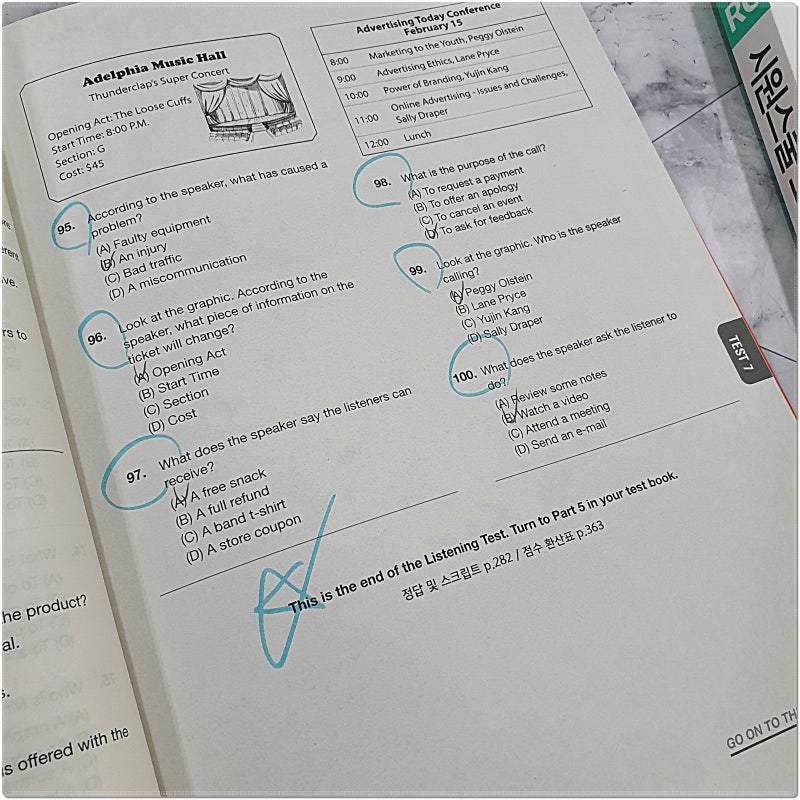 Adelphia Music Hall
Thunderclap's Super Concert
Opening Act: The Loose Cuffs
Start Time: 8:00 P.M.
Section: G
Cost: $45
95. According to the speaker, what has caused a
problem?
(A) Faulty equipment
(B) An injury
(C) Bad traffic
(D) A miscommunication
96. Look at the graphic. According to the
speaker, what piece of information on the
ticket will change?
(A) Opening Act
(B) Start Time
(C) Section
(D) Cost
97. What does the speaker say the listeners can
receive?
(A) A free snack
(B) A full refund
(C) A band t-shirt
(D) A store coupon
Advertising Today Conference
February 15
8:00 Marketing to the Youth, Peggy Olstein
9:00 Advertising Ethics, Lane Pryce
10:00 Power of Branding, Yujin Kang
11:00 Online Advertising - Issues and Challenges,
Sally Draper
12:00 Lunch
98. What is the purpose of the call?
(A) To request a payment
(B) To offer an apology
(C) To cancel an event
(D) To ask for feedback
99. Look at the graphic. Who is the speaker
calling?
(A) Peggy Olstein
(B) Lane Pryce
(C) Yujin Kang
(D) Sally Draper
100. What does the speaker ask the listener to
do?
(A) Review some notes
(B) Watch a video
(C) Attend a meeting
(D) Send an e-mail
This is the end of the Listening Test. Turn to Part 5 in your test book.
정답 및 스크립트 p.282 / 점수 환산표 p.363
TEST 7
GO ON TO TH
rs to
he product?
al.
s.
is offered with the
시원스쿨